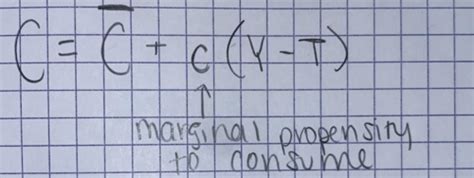 C = C̅ + c (Y - T)
↑
marginal propensity
to consume